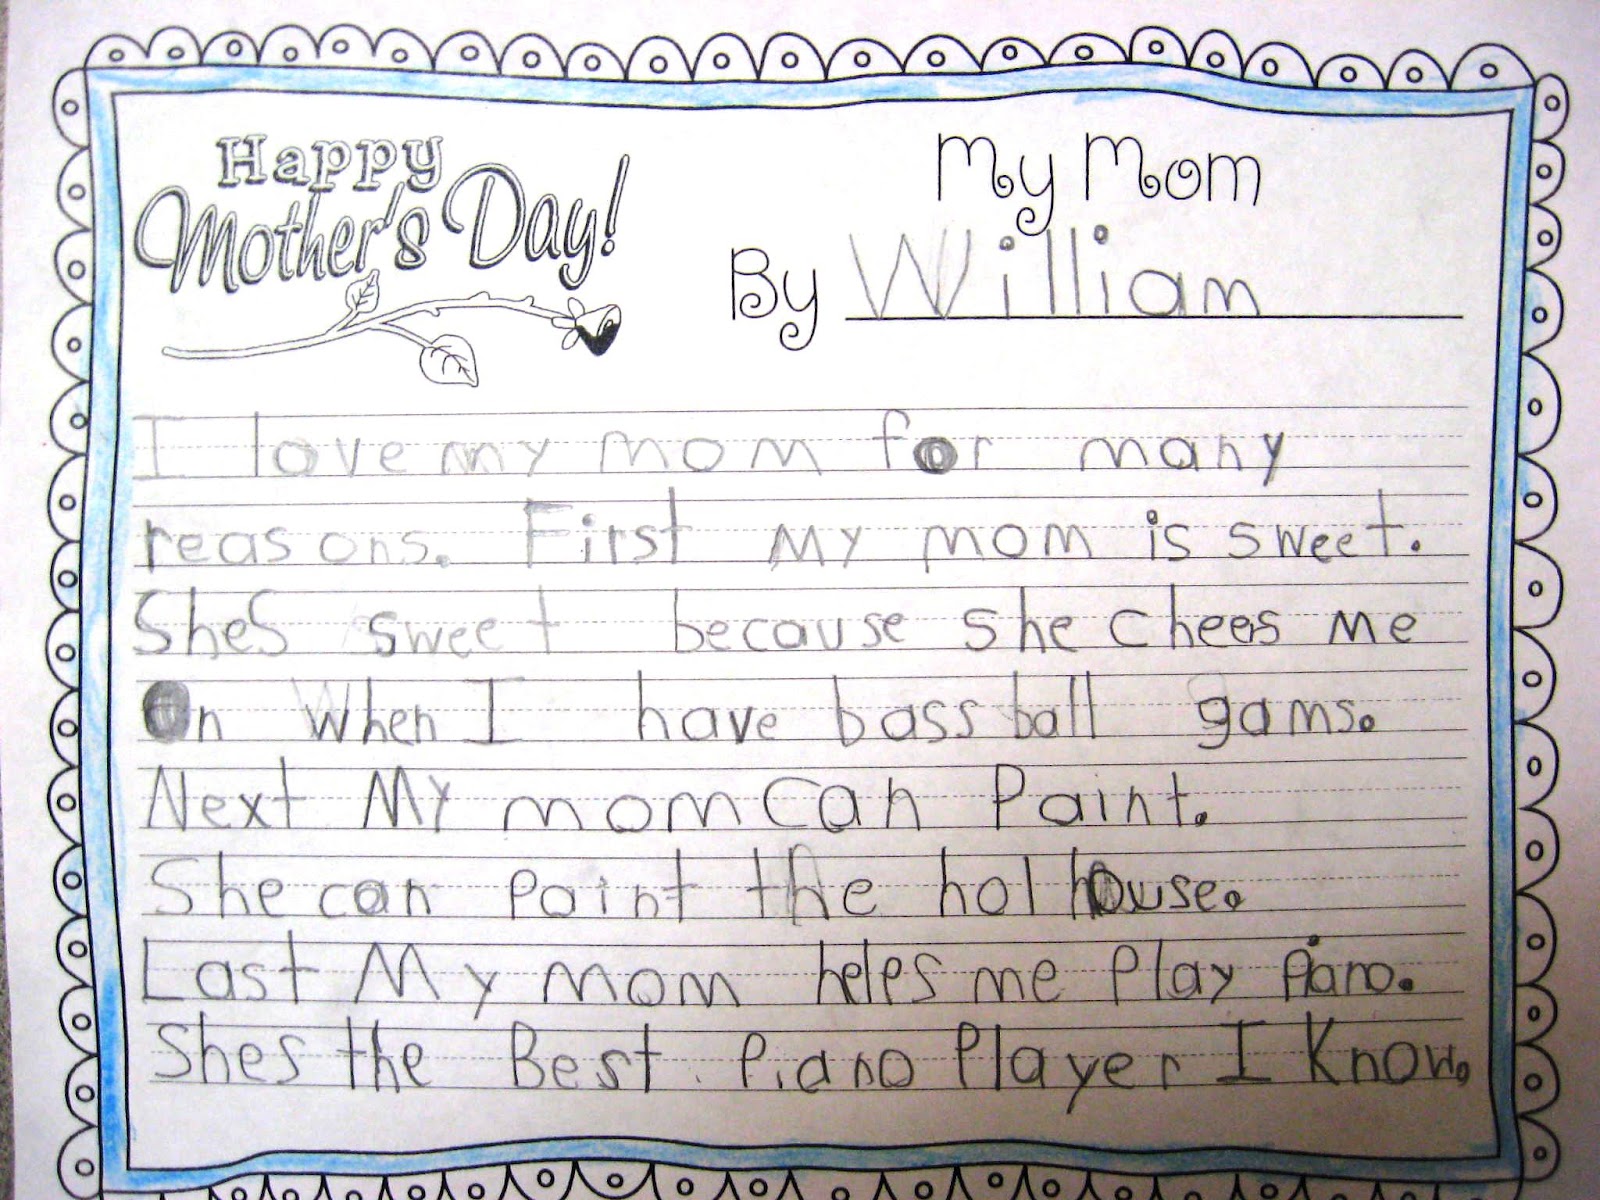 Happy
Mother's Day!
My Mom
By William
I love my mom for many
reasons. First My mom is sweet.
Shes sweet because she chees me
on when I have bassball gams.
Next My mom can Paint.
She can Paint the hol house.
Last My mom helps me Play Piano.
Shes the Best Piano Player I Know.